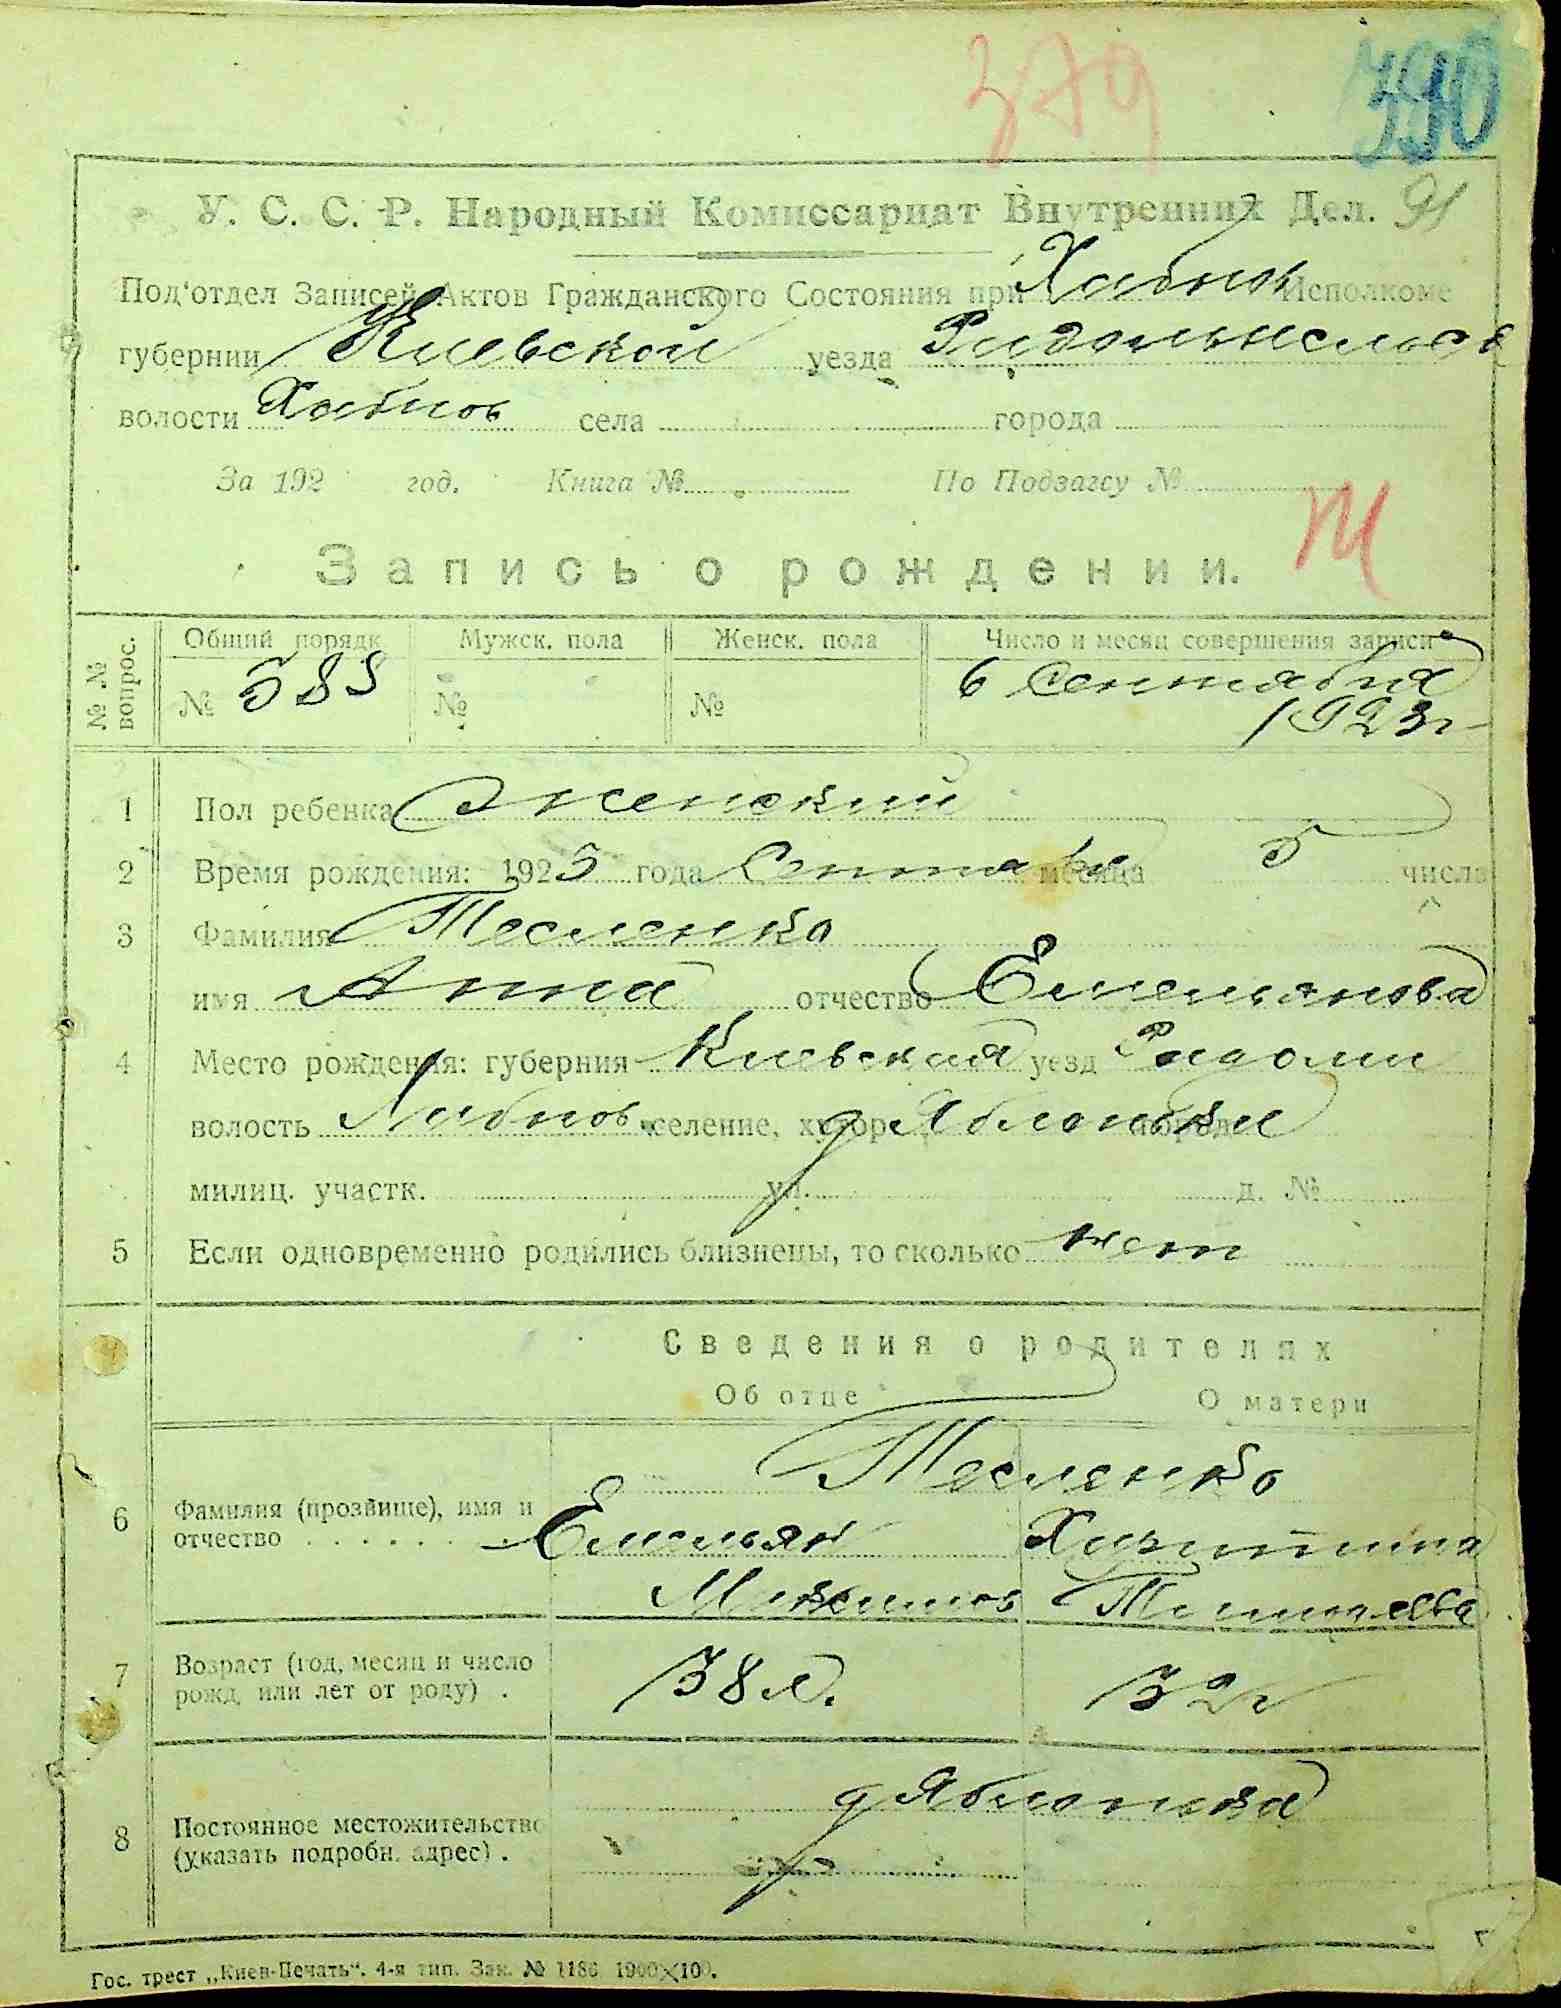 379 390
У. С. С. Р. Народный Комиссариат Внутренних Дел. 91
Под'отдел Записей Актов Гражданского Состояния при Хабнов Исполкоме
губернии Киевской уезда
волости Хабнов села города
За 192 год. Книга № По Подзагсу №
Запись о рождении.
№ № вопрос. Общий порядк. Мужск. пола Женск. пола Число и месяц совершения записи
№ 585 № № 6 Сентября
1923 г
1 Пол ребенка Женский
2 Время рождения: 1923 года месяца 5 числа
3 Фамилия Тесленко
имя Анна отчество Емельянова
4 Место рождения: губерния Киевская уезд Радомы
волость Хабнов селение, хутор д Яблонька город
милиц. участк. ул. д. №
5 Если одновременно родились близнецы, то сколько нет
Сведения о родителях
Об отце О матери
Тесленко
6 Фамилия (прозвище), имя и
отчество . . . . . . Емельян
Максимов
7 Возраст (год, месяц и число
рожд. или лет от роду) . 38 л. 32 г
8 Постоянное местожительство
(указать подробн. адрес) . д Яблонька
Гос. трест „Киев-Печать“. 4-я тип. Зак. № 1186 1900×100.